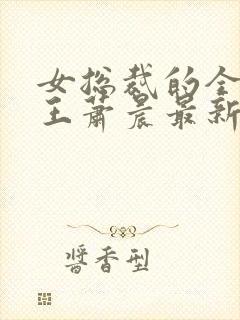 女总裁的全
王萧晨最新
酱香型